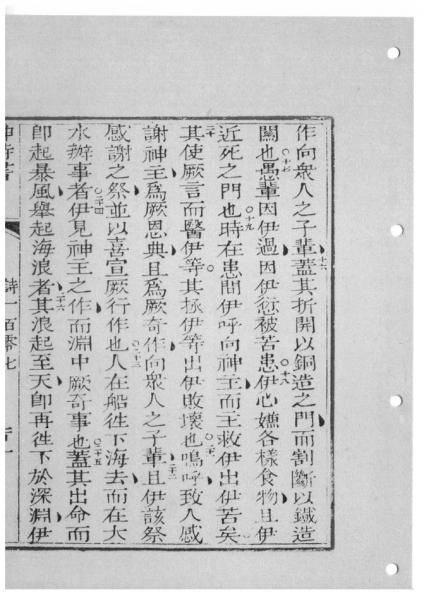 作向衆人之子輩蓋其折開以銅造之門而割斷以鐵造
關也愚輩因伊過因伊愆被苦患伊心嫌各樣食物且伊
近死之門也時在患間伊呼向神主而主救伊出伊苦矣
其使厥言而醫伊等其拯伊等出伊敗壞也嗚呼致人感
謝神主爲厥恩典且爲厥奇作向衆人之子輩且伊該祭
感謝之祭並以喜宣厥行作也人在船徃下海去而在大
水辦事者伊見神主之作而淵中厥奇事也蓋其出命而
即起暴風舉起海浪者其浪起至天即再徃下於深淵伊
詩一百零七